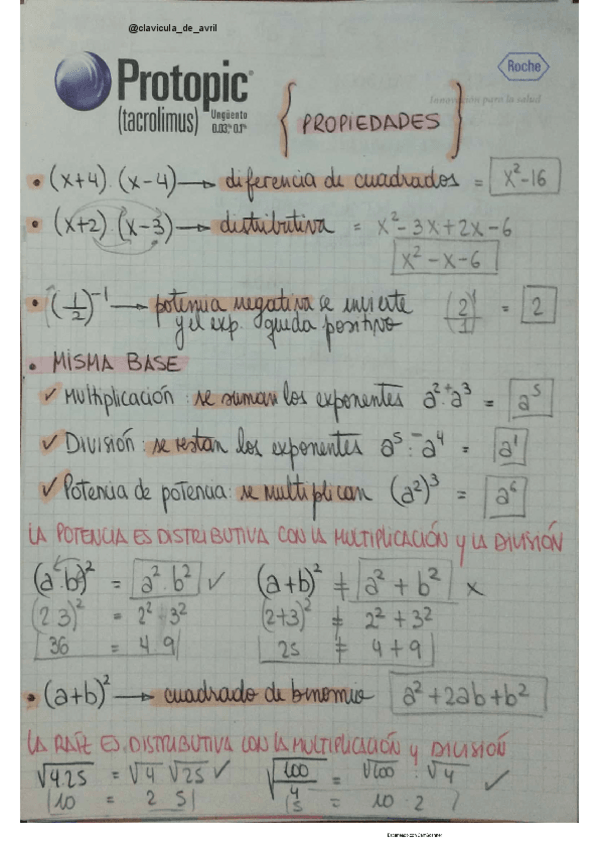 @clavicula_de_avril
Protopic®
(tacrolimus) Ungüento
0.03% 0.1%
Roche
Innovación para la salud
{ PROPIEDADES }
• (x+4).(x-4) → diferencia de cuadrados = x²-16
• (x+2).(x-3) → distributiva = x²-3x+2x-6
x²-x-6
• (1/2)⁻¹ → potencia negativa se invierte (2/1)¹ = 2
y el exp. queda positivo
• MISMA BASE
✓ Multiplicación: se suman los exponentes a²·⁺a³ = a⁵
✓ División: se restan los exponentes a⁵:⁻a⁴ = a¹
✓ Potencia de potencia: se multiplican (a²)³ = a⁶
LA POTENCIA ES DISTRIBUTIVA CON LA MULTIPLICACIÓN y LA DIVISIÓN
(a.b)² = a².b² ✓ (a+b)² ≠ a²+b² x
(2.3)² = 2².3² (2+3)² ≠ 2²+3²
36 = 4.9 25 ≠ 4+9
• (a+b)² → cuadrado de binomio a²+2ab+b²
LA RAÍZ ES DISTRIBUTIVA CON LA MULTIPLICACIÓN y DIVISIÓN
√4.25 = √4.√25 ✓ √100/4 = √100 : √4 ✓
10 = 2.5 5 = 10:2
Escaneado con CamScanner